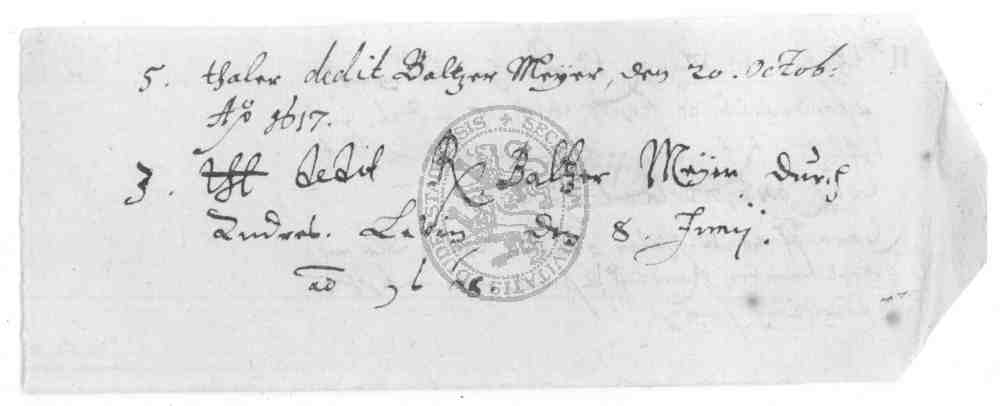 5. thaler dedit Baltzer Meyer, den 20. Octob:
Aº 1617.
3. dedit R Baltzer Meyer durch
Andres. den 8. Junij.
aō
SECRETUM CIVITATIS